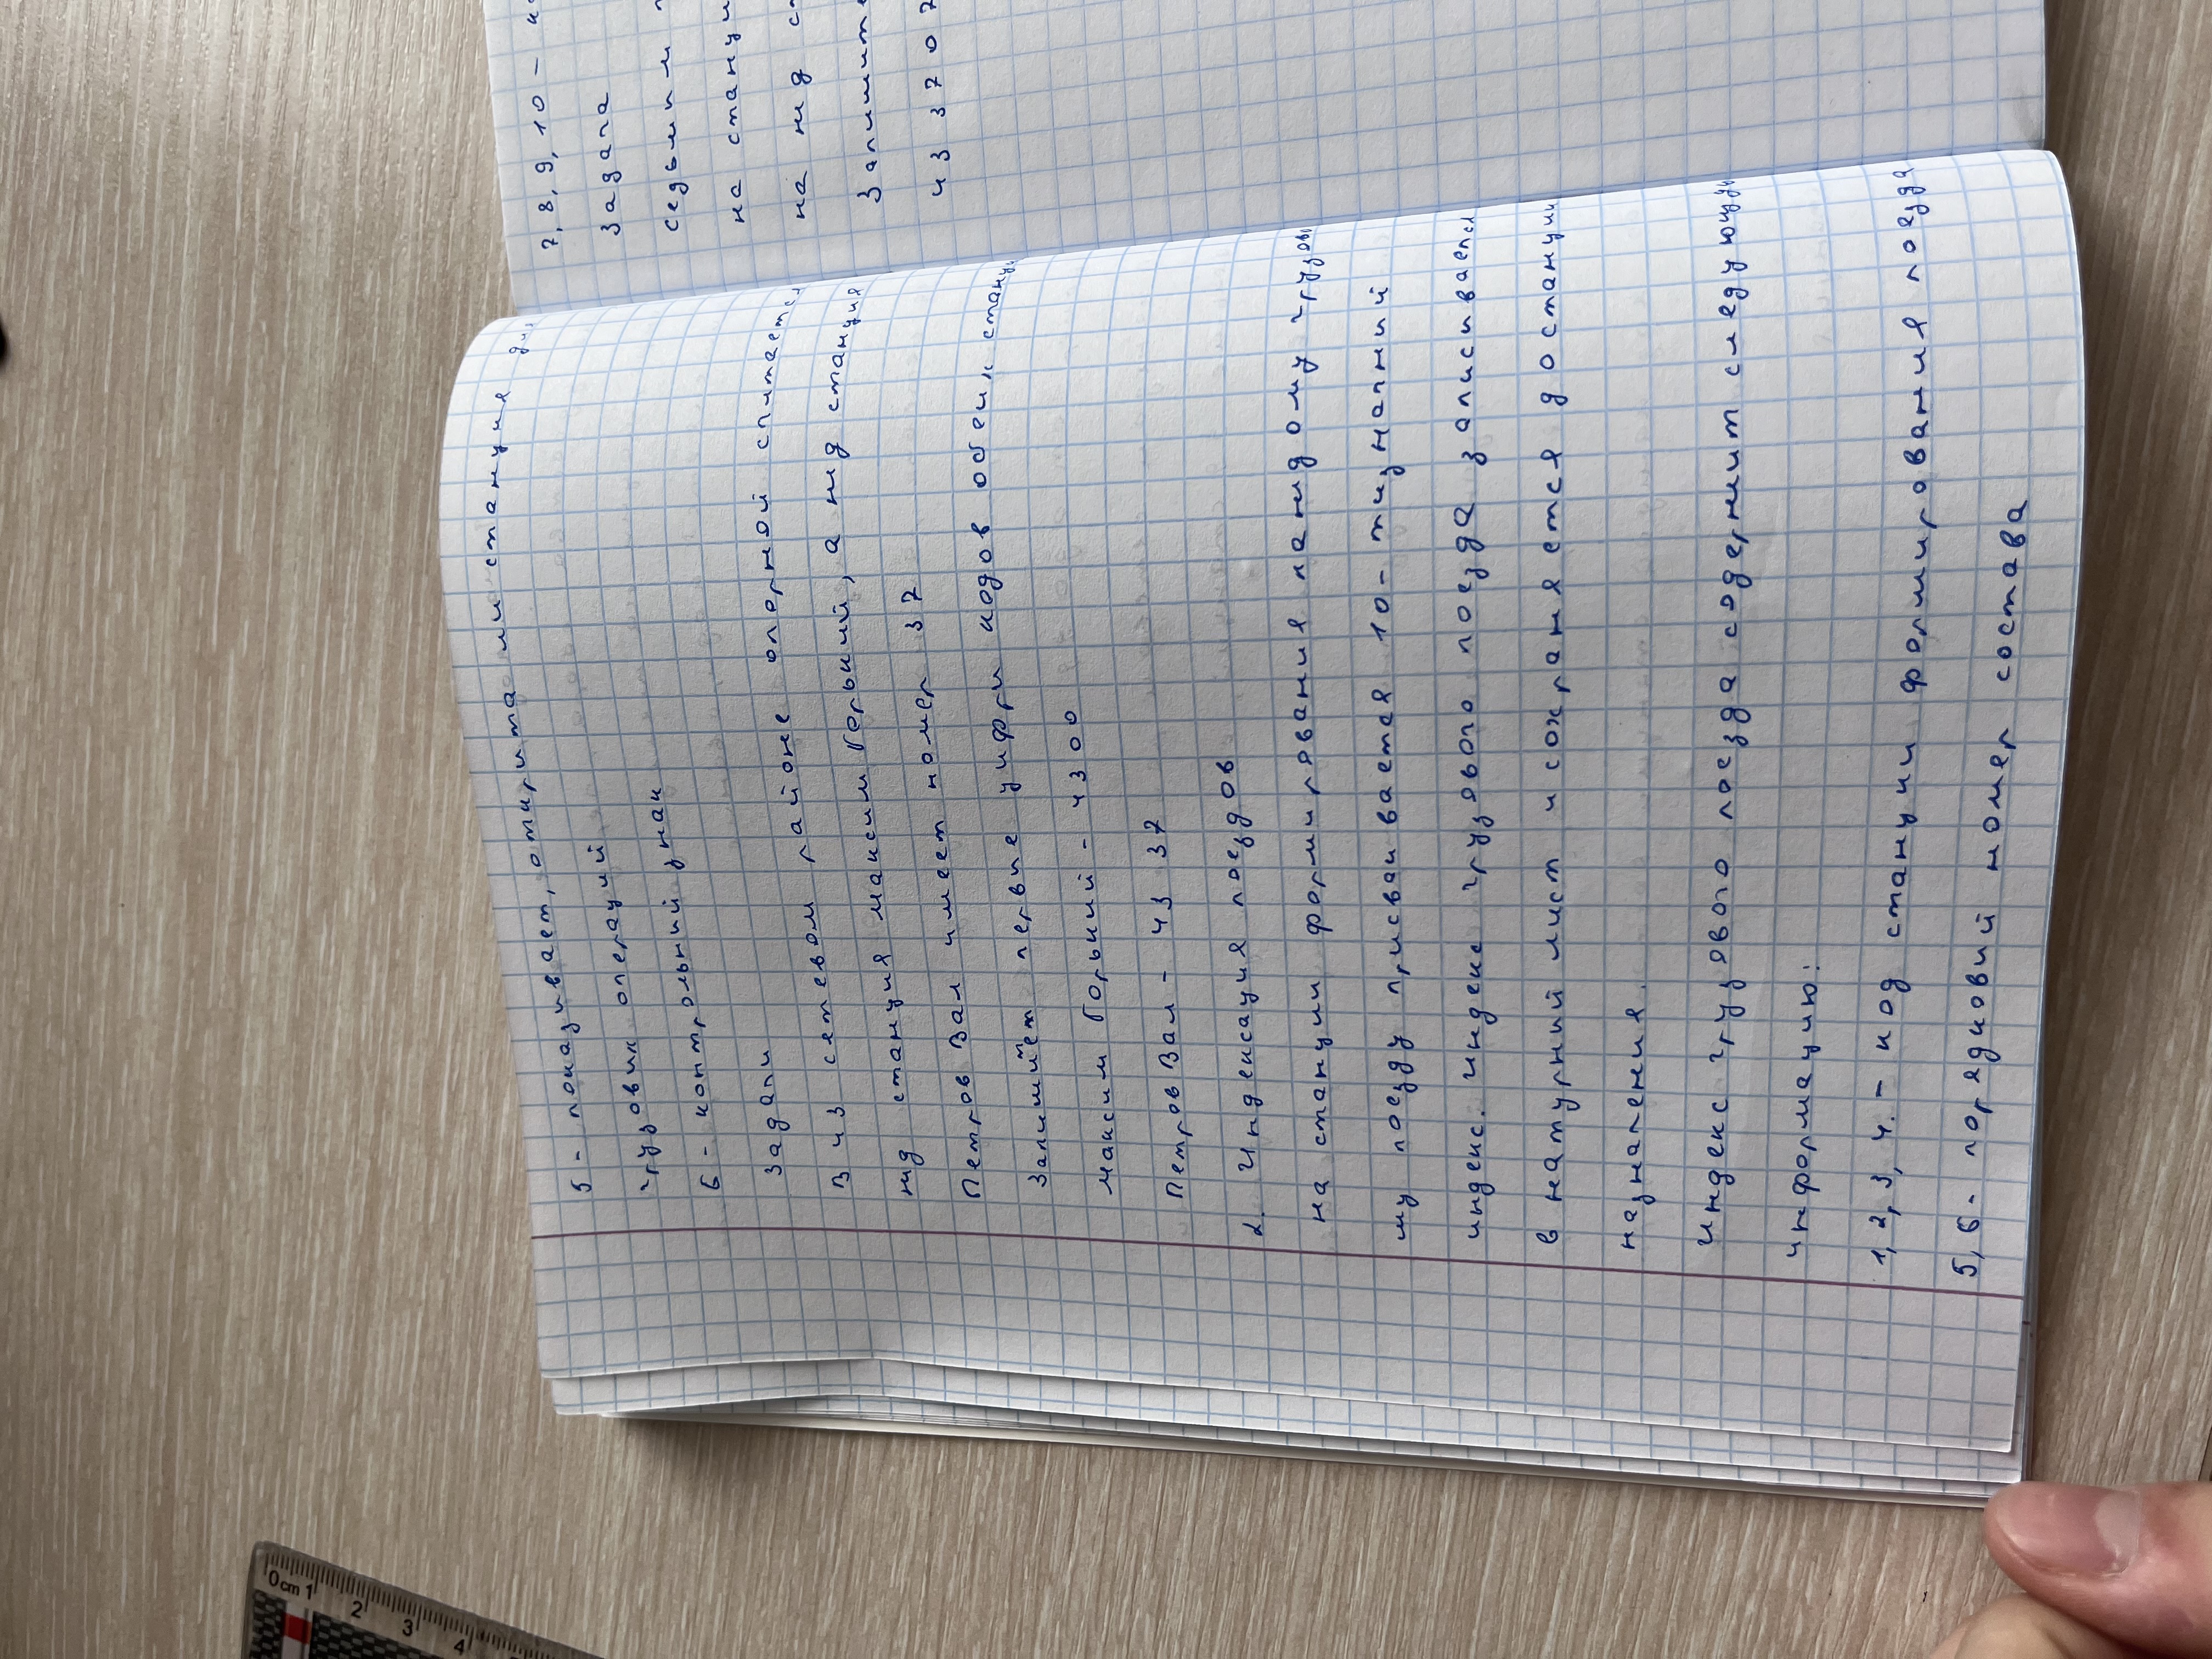 5 - показивает, открита ли станция для
грузових операций
6 - контрольний знак
Задачи
В 43 сетевом районе опорной считается
нд станция максим Горький, а нд станция
Петров Вал имеет номер 37
Запишите первие цифри кодов обеих станци
максим Горький - 4300
Петров Вал - 43 37
2. Индексация поездов
на станции формирования каждому грузово
му поезду присваивается 10-тизначний
индекс. индекс грузявого поезда записивается
в натурний лист и сохраняется до станции
назначения.
индекс грузявого поезда содержит следующу
информацию:
1, 2, 3, 4. - код станции формирования поезда
5, 6 - порядковий номер состава
7, 8, 9, 10 -
Задача
седьми
на
на нд
Запишите
43 37 07
0 cm 1 2 3 4